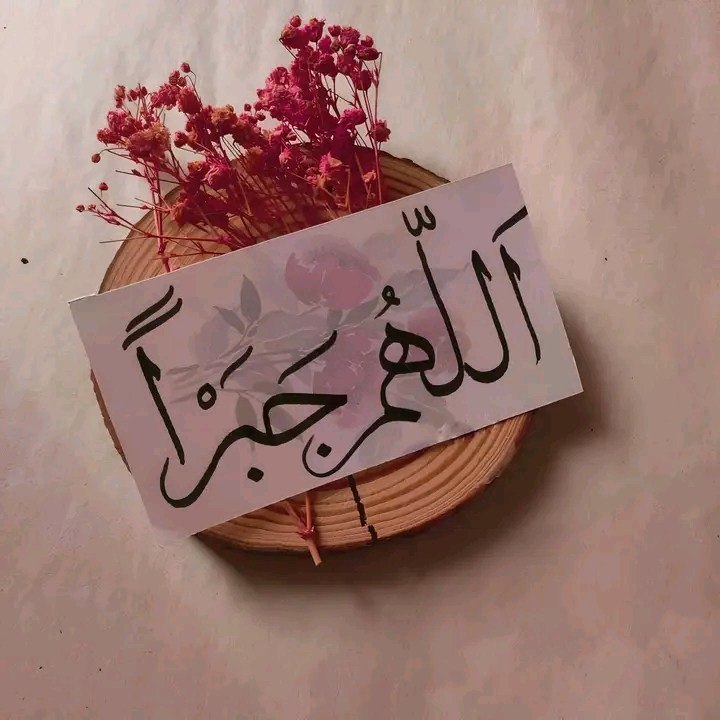 اَللّٰهُم جَبْراً